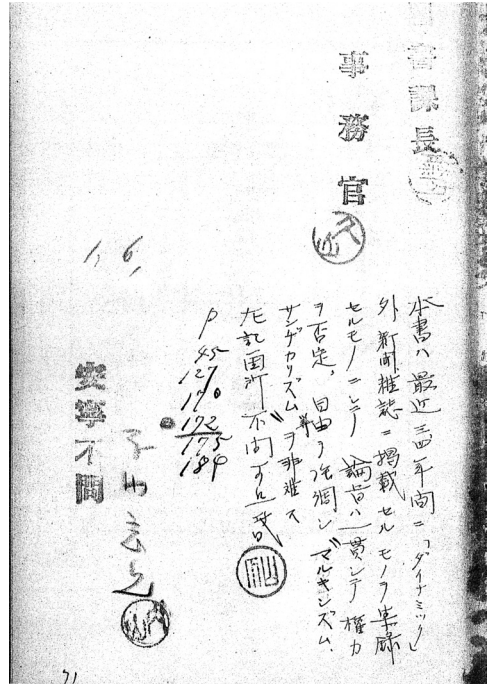 書課長
事務官
本書ハ最近三四年間ニ「ダイナミック」
外新聞雑誌ニ掲載セルモノヲ集録
セルモノニシテ論旨ハ一貫シテ権力
ヲ否定、自由ヲ強調シマルキシズム、
サンヂカリズム等ヲ非難ス
左記箇所不問可然哉
P
45
127
170
172
175
184
1, 6,
安寧不問
71